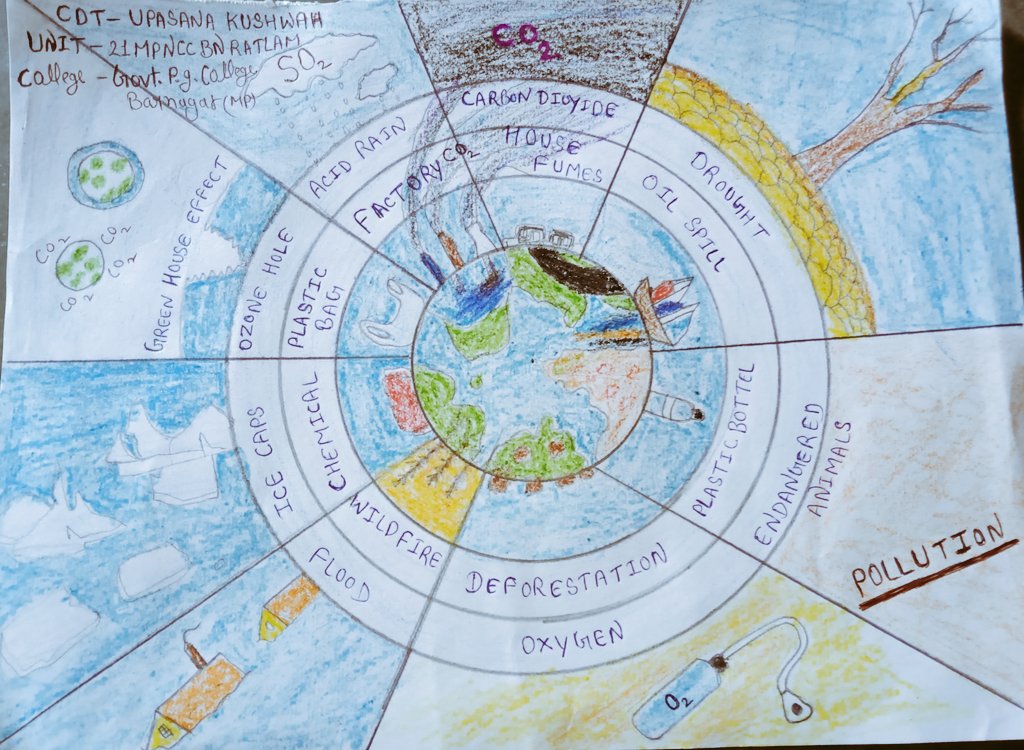 CDT- UPASANA KUSHWAH
UNIT- 21 MP NCC BN RATLAM
College - Govt. P.g. College
Barnagar (MP)
SO2
CO2
CARBON DIOYIDE
HOUSE
FUMES
ACID RAIN
FACTORY CO2
DROUGHT
OIL SPILL
GREEN HOUSE EFFECT
CO2
CO2
CO2
CO2
OZONE HOLE
PLASTIC
BAG
ICE CAPS
CHEMICAL
PLASTIC BOTTEL
ENDANGERED
ANIMALS
POLLUTION
WILDFIRE
FLOOD
DEFORESTATION
OXYGEN
O2